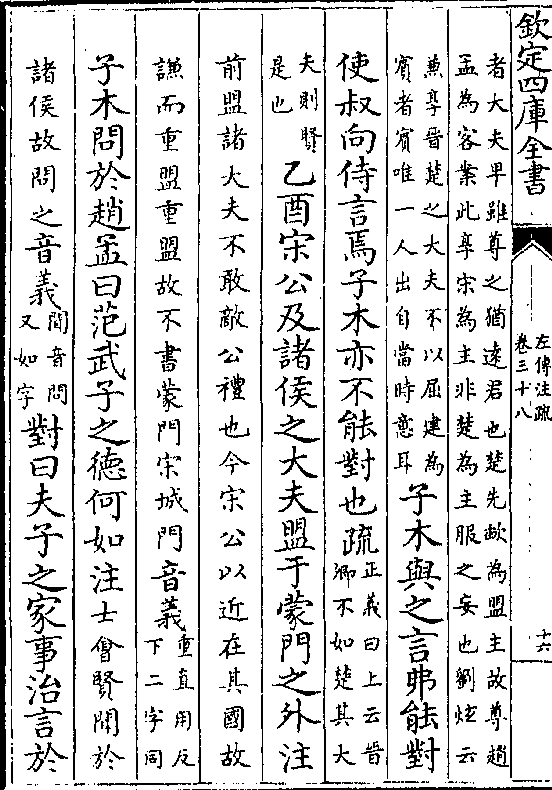 欽定四庫全書
左傳注疏
卷三十八
十六
者大夫卑雖尊之猶遠君也楚先歃為盟主故尊趙
孟為客案此享宋為主非楚為主服之妄也劉炫云
兼享晉楚之大夫不以屈建為
賓者賓唯一人出自當時意耳
子木與之言弗能對
使叔向侍言焉子木亦不能對也疏
正義曰上云晉
卿不如楚其大
夫則賢
是也
乙酉宋公及諸侯之大夫盟于蒙門之外注
前盟諸大夫不敢敵公禮也今宋公以近在其國故
謙而重盟重盟故不書蒙門宋城門音義
重直用反
下二字同
子木問於趙孟曰范武子之德何如注士會賢聞於
諸侯故問之音義
聞音問
又如字
對曰夫子之家事治言於